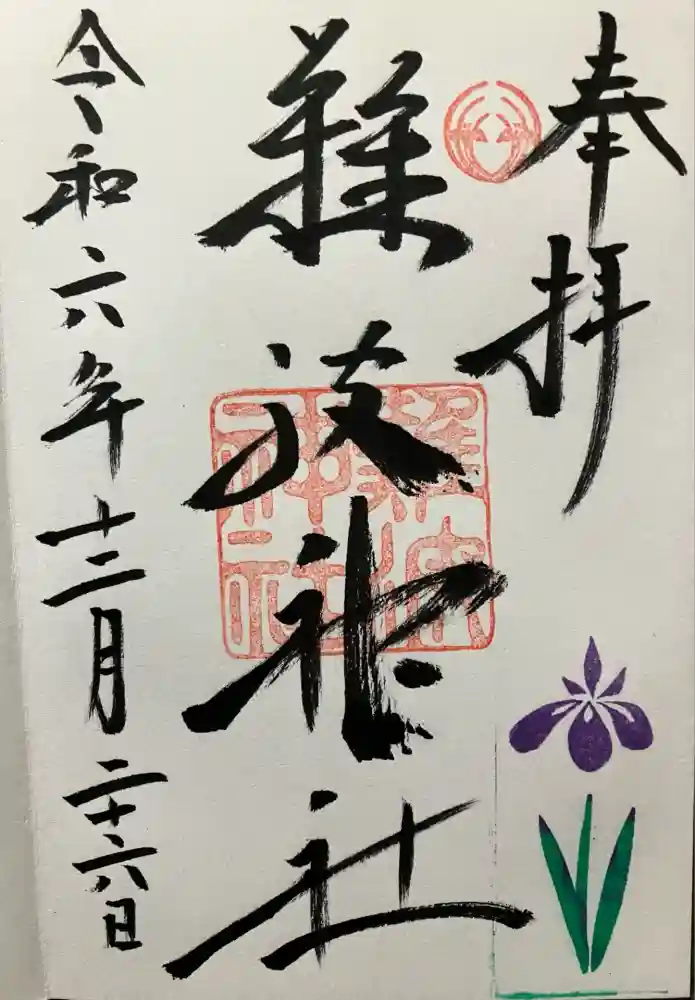 奉拝
難波神社
難波神社
令和六年十二月二十六日